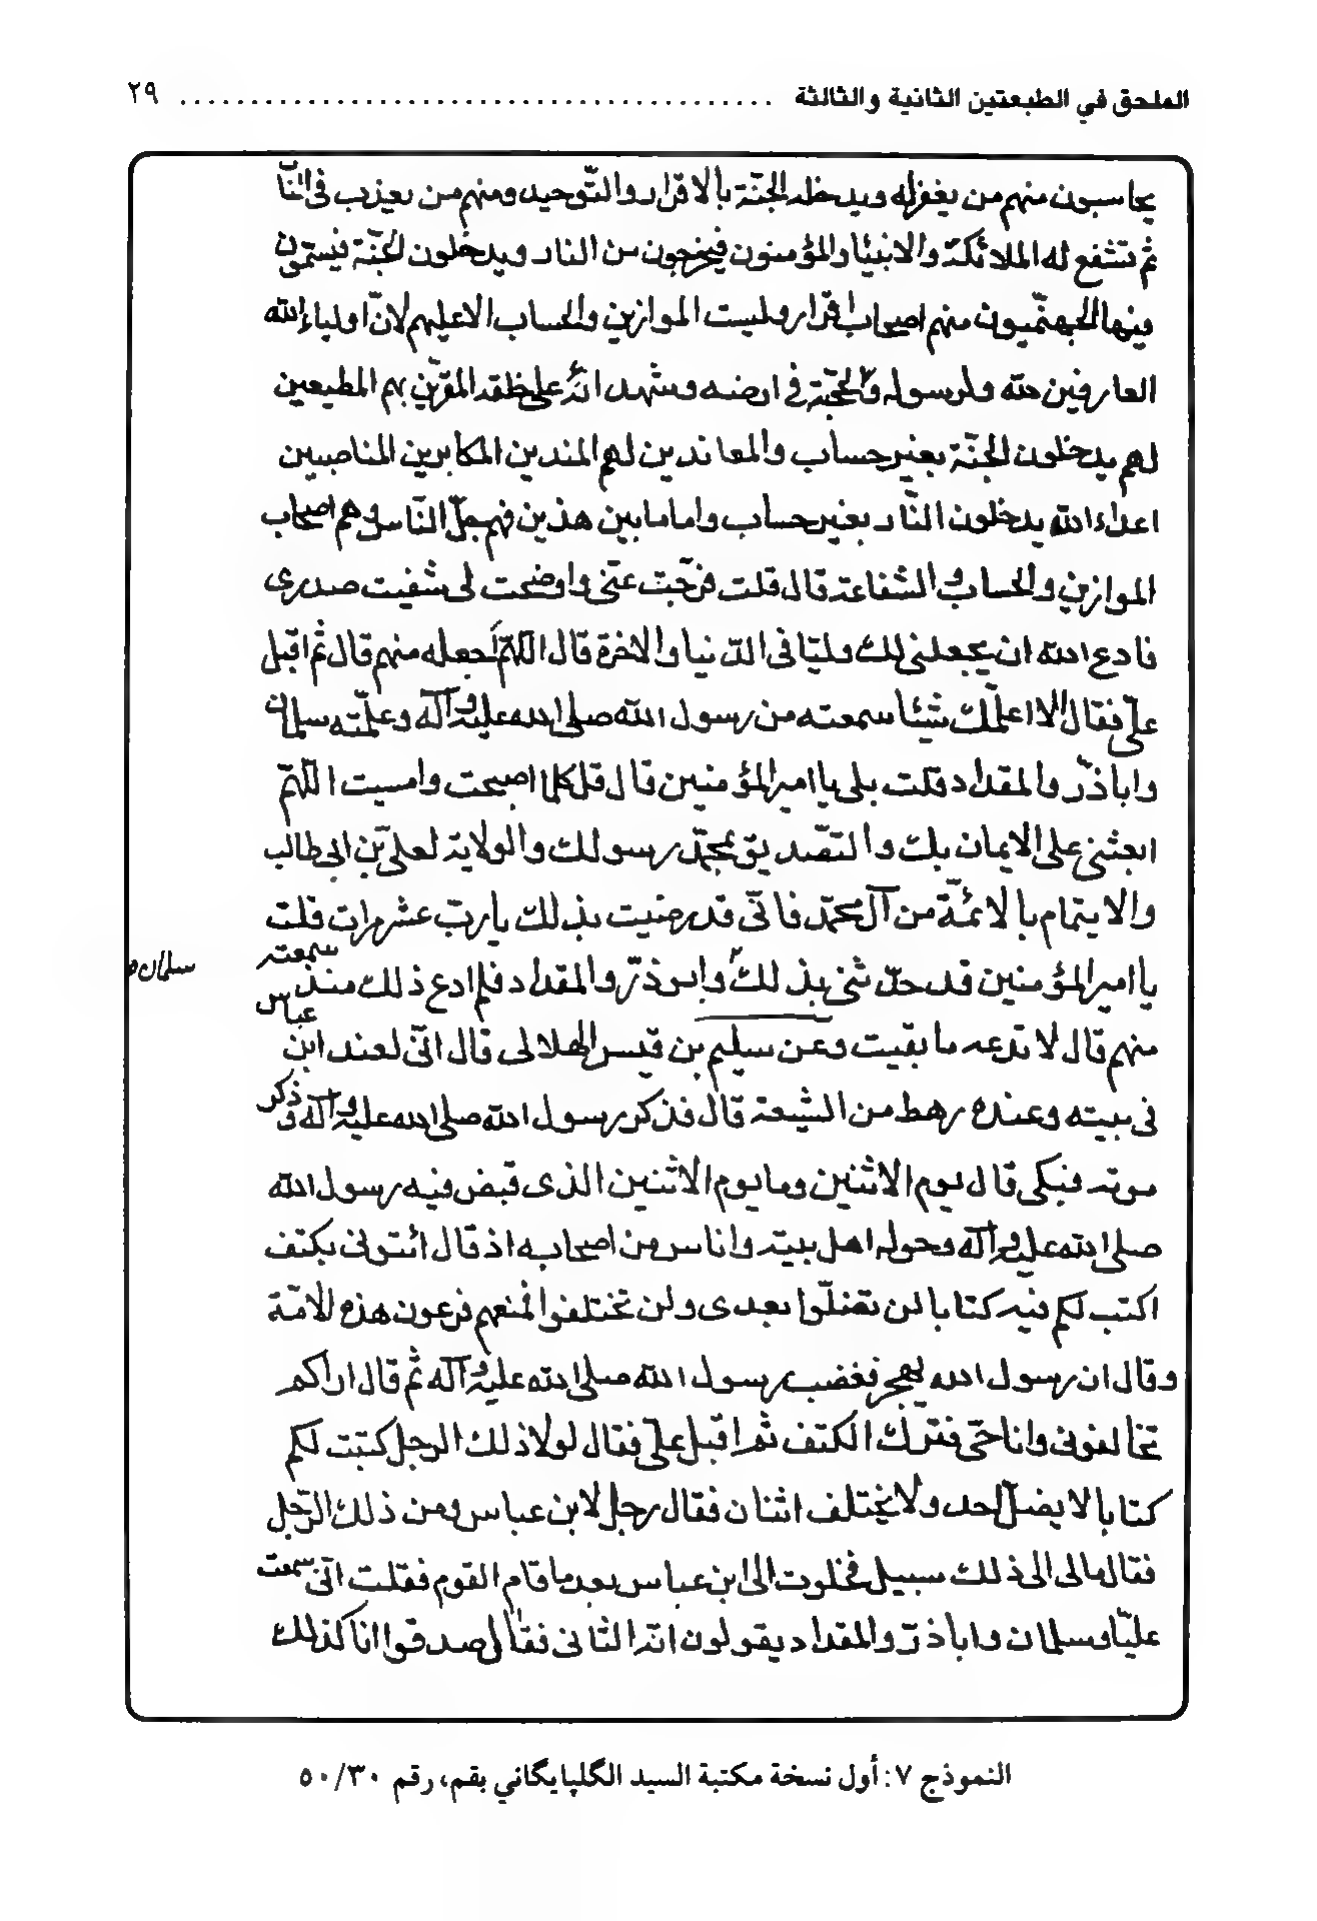 الملحق في الطبعتين الثانية والثالثة ........................................ ٢٩
يحاسبون منهم من يغفر له ويدخله الجنّة بالاقرار والتّوحيد ومنهم من يعذب في النّار
ثم تشفع له الملائكة والانبياء والمؤمنون فيخرجون من النار ويدخلون الجنّة فيسمّون
فيها الجهنّميون منهم اصحاب اقرار وليست الموازين والحساب الا عليهم لانّ اولياء الله
العارفين لله ولرسوله والحجّة في ارضه وشهدائه على خلقه المقرّين بهم المطيعين
لهم يدخلون الجنّة بغير حساب والمعاندين لهم المنذرين المكابرين المناصبين
اعداء الله يدخلون النّار بغير حساب واما ما بين هذين فهم جلّ النّاس وهم اصحاب
الموازين والحساب والشفاعة قال قلت فرّجت عنّى واوضحت لى شفيت صدرى
فادع الله ان يجعلنى لك وليّا فى الدّنيا والاخرة قال اللّهمّ اجعله منهم قال ثم اقبل
علىّ فقال الا اعلّمك شيئا سمعته من رسول الله صلى الله عليه وآله وعلّمته سلمان
واباذرّ والمقداد قلت بلى يا امير المؤمنين قال قل كلما اصبحت وامسيت اللّهمّ
ابعثنى على الايمان بك والتصديق بمحمّد رسولك والولاية لعلىّ بن ابى طالب
والايتمام بالائمّة من آل محمّد فانّى قد رضيت بذلك يا ربّ عشر مرات قلت
يا امير المؤمنين قد حدّثنى بذلك وابوذرّ والمقداد فلم ادع ذلك منذ سمعته
سلمان
منهم قال لا تدعه ما بقيت وعن سليم بن قيس الهلالى قال انّى لعند ابن عباس
فى بيته وعنده رهط من الشيعة قال فذكر رسول الله صلى الله عليه وآله وذكر
موته فبكى قال يوم الاثنين وما يوم الاثنين الذى قبض فيه رسول الله
صلى الله عليه وآله وحوله اهل بيته واناس من اصحابه اذ قال ائتونى بكتف
اكتب لكم فيه كتابا لن تضلّوا بعدى ولن تختلفوا فمنعهم فرعون هذه الامّة
وقال ان رسول الله يهجر فغضب رسول الله صلى الله عليه وآله ثم قال اراكم
تخالفونى وانا حىّ فترك الكتف ثم اقبل علىّ فقال لولا ذلك الرجل كتبت لكم
كتابا لا يضل احد ولا يختلف اثنان فقال رجل لابن عباس ومن ذلك الرّجل
فقال مالى الى ذلك سبيل فخلوت الى ابن عباس بعد ما قام القوم فقلت انّى سمعت
عليّا وسلمان واباذرّ والمقداد يقولون انه الثانى فقال صدقوا انا كذلك
النموذج ٧: أول نسخة مكتبة السيد الگلپايگاني بقم، رقم ٥٠/٣٠